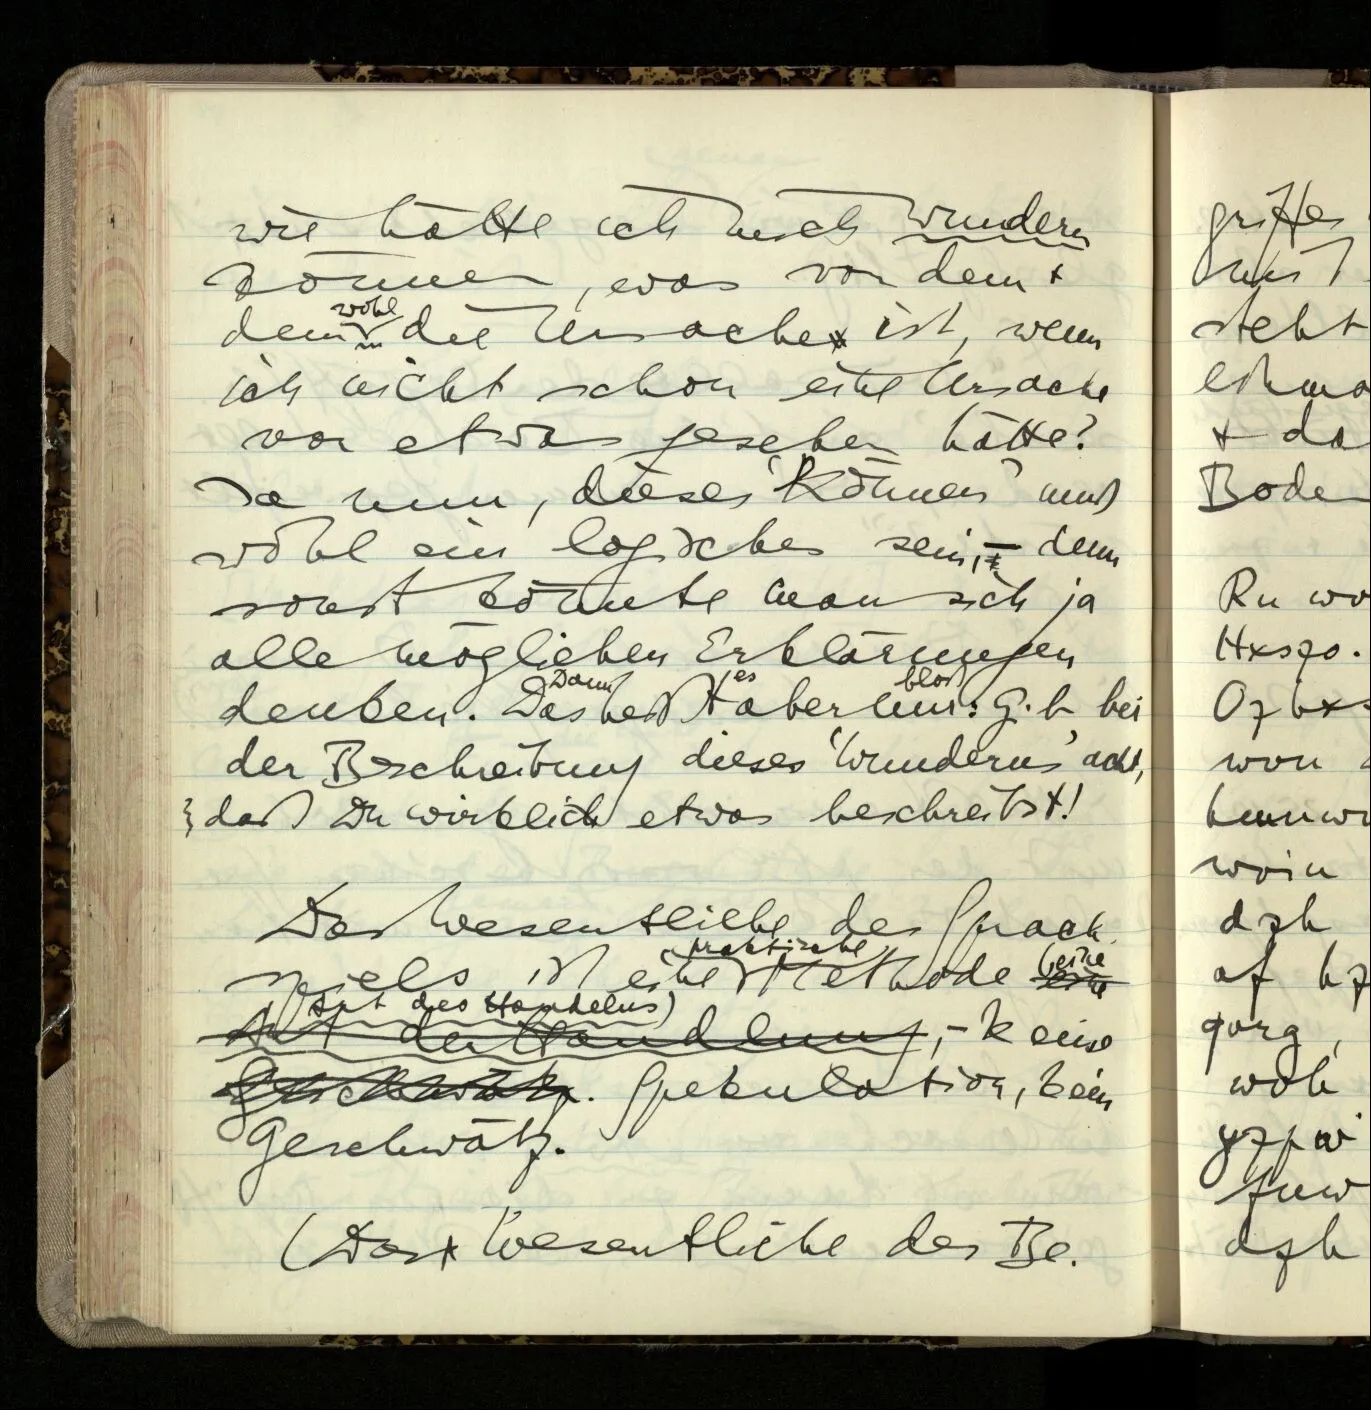 wie hätte ich mich wundern
können, was von dem +
dem wohl die Ursache ist, wenn
ich nicht schon eine Ursache
von etwas gesehen hätte?
Ja nun, dieses 'Können' muß
wohl ein logisches sein, – denn
sonst könnte man sich ja
alle möglichen Erklärungen
denken. Dann heißt es aber bloß: Gib bei
der Beschreibung dieses 'Wunderns' acht,
daß Du wirklich etwas beschreibst!
Das Wesentliche des Sprach-
spiels ist eine praktische Methode (eine
Art des Handelns)
Art der Handlung, – keine
Geschwätz. Spekulation, kein
Geschwätz.
(Das Wesentliche des Be-
griffes
steht
+ da
Boden
Ru wo
Hxszo.
won
woin
dzh
gorg,
woh
dzh